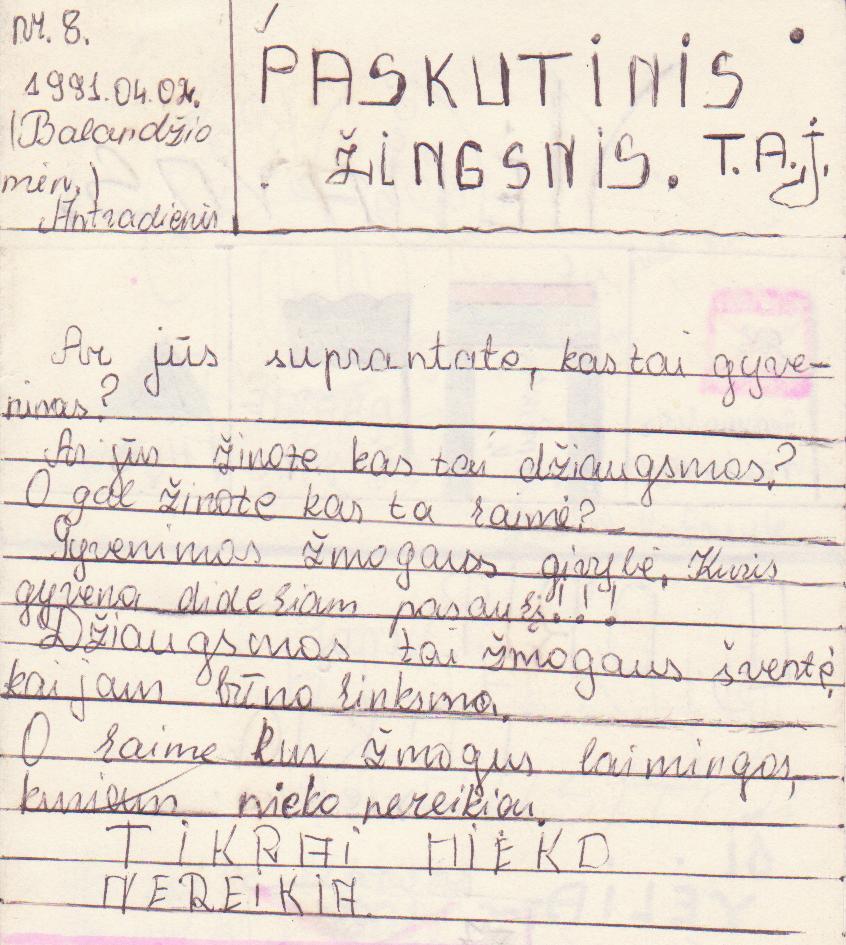 Nr. 8.
1991.04.02.
(Balandžio
mėn.)
Antradienis
PASKUTINIS
ŽINGSNIS. T.A.J.
Ar jūs suprantate, kas tai gyve-
nimas?
Ar jūs žinote kas tai džiaugsmas?
O gal žinote kas ta laimė?
Gyvenimas žmogaus givybė, Kuris
gyvena dideliam pasauly!!!
Džiaugsmas tai žmogaus šventė,
kai jam būna linksma.
O laime kur žmogus laimingas,
kuriam nieko nereikiau.
TIKRAI NIEKO
NEREIKIA.